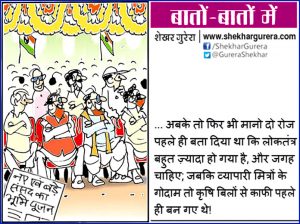 बातों-बातों में
शेखर गुरेरा | www.shekhargurera.com
/ShekharGurera
@GureraShekhar
... अबके तो फिर भी मानो दो रोज
पहले ही बता दिया था कि लोकतंत्र
बहुत ज़्यादा हो गया है, और जगह
चाहिए; जबकि व्यापारी मित्रों के
गोदाम तो कृषि बिलों से काफी पहले
ही बन गए थे!
नए एवं बड़े
संसद का
भूमि पूजन